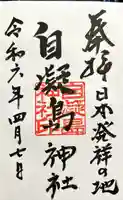 奉拝
日本発祥の地
自凝島神社
令和六年四月七日